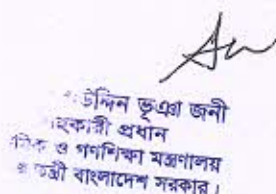 উদ্দিন ভূঞা জনী
সহকারী প্রধান
ও গণশিক্ষা মন্ত্রণালয়
বাংলাদেশ সরকার।